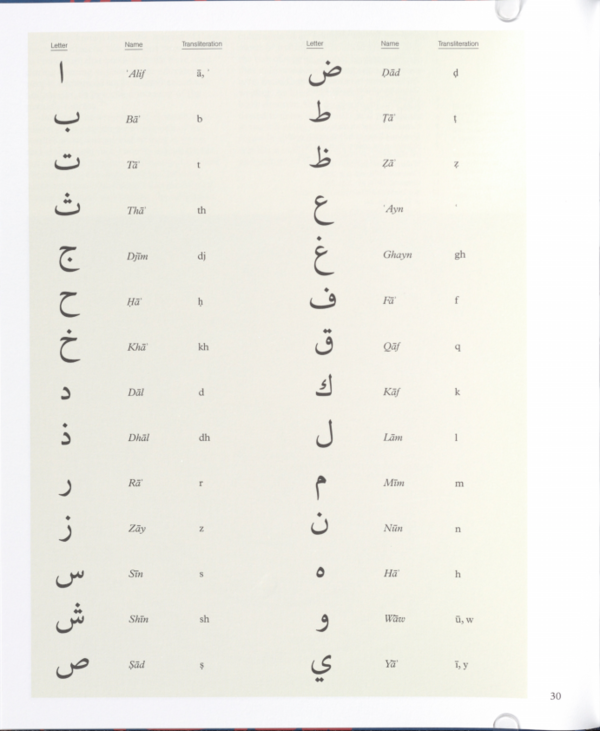 Letter Name Transliteration
ا ʾAlif ā, ʾ
ب Bāʾ b
ت Tāʾ t
ث Thāʾ th
ج Djīm dj
ح Ḥāʾ ḥ
خ Khāʾ kh
د Dāl d
ذ Dhāl dh
ر Rāʾ r
ز Zāy z
س Sīn s
ش Shīn sh
ص Ṣād ṣ
Letter Name Transliteration
ض Ḍād ḍ
ط Ṭāʾ ṭ
ظ Ẓāʾ ẓ
ع ʿAyn ʿ
غ Ghayn gh
ف Fāʾ f
ق Qāf q
ك Kāf k
ل Lām l
م Mīm m
ن Nūn n
ه Hāʾ h
و Wāw ū, w
ي Yāʾ ī, y
30